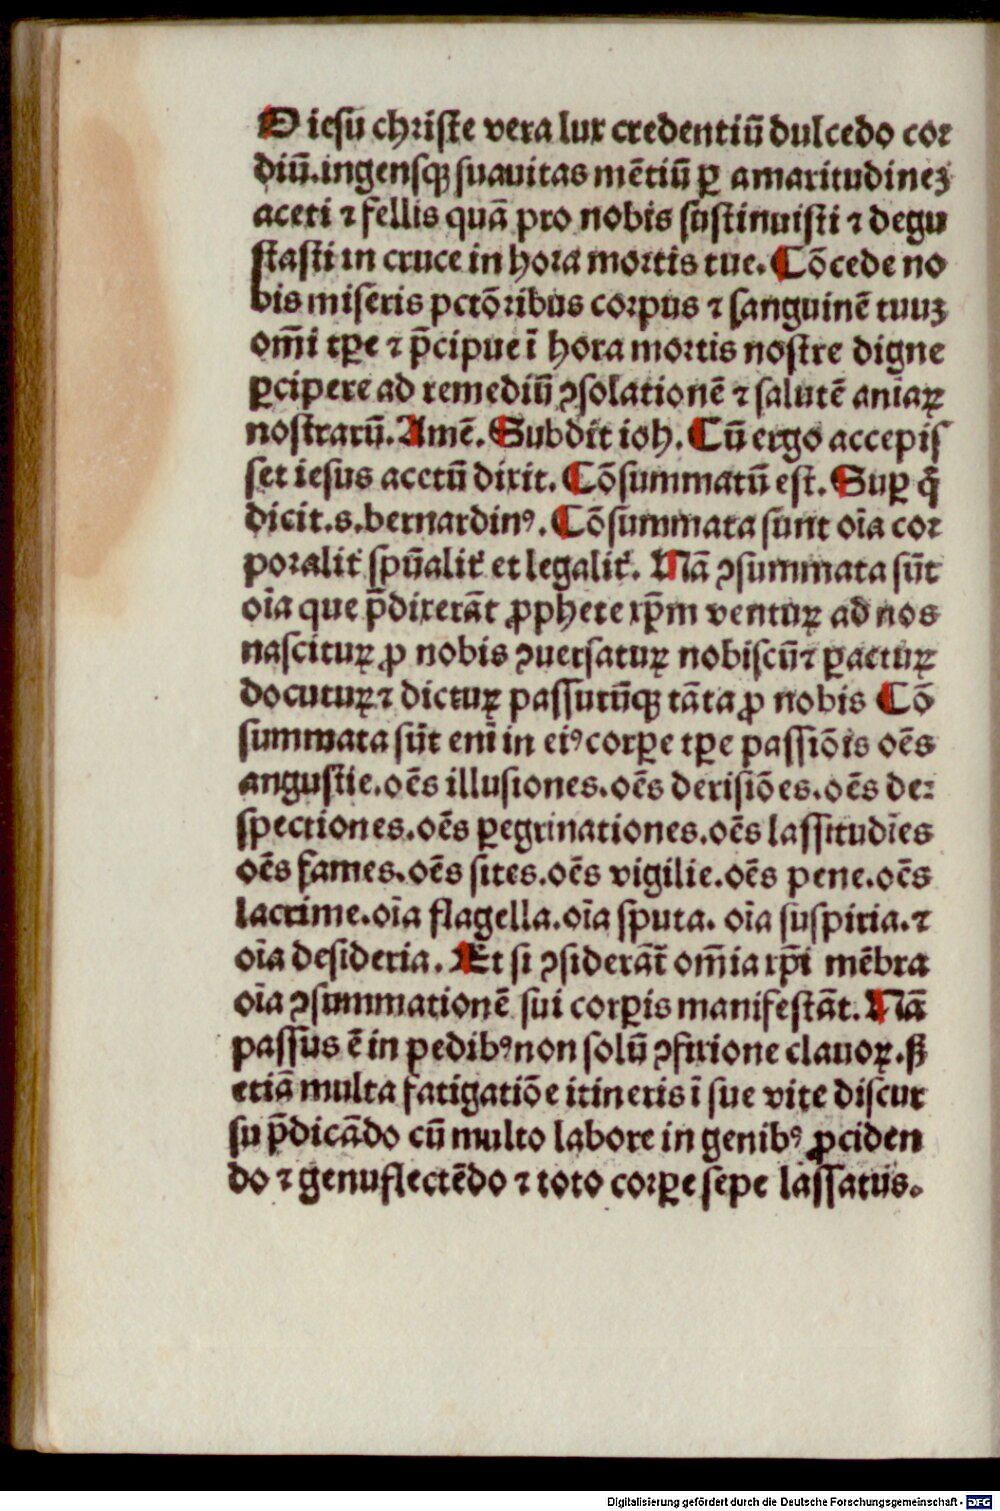 O iesu christe vera lux credentiū dulcedo cor
diū.ingensqꝫ suauitas mētiū ꝑ amaritudineꝫ
aceti ⁊ fellis quā pro nobis sustinuisti ⁊ degu
stasti in cruce in hora mortis tue. Cōcede no
bis miseris pctōribus corpus ⁊ sanguinē tuuꝫ
om̄i tꝑe ⁊ p̄cipue ī hora mortis nostre digne
ꝑcipere ad remediū ꝯsolationē ⁊ salutē aniaꝝ
nostrarū. Amē. Subdit ioh. Cū ergo accepis
set iesus acetū dixit. Cōsummatū est. Suꝑ q̄
dicit.s.bernardinꝰ. Cōsummata sunt oīa cor
poralit̄ spūalit̄ et legalit̄. Nā ꝯsummata sūt
oīa que p̄dixerāt ꝓphete xp̄m ventuꝝ ad nos
nascituꝝ ꝓ nobis ꝯuersatuꝝ nobiscū ⁊ ꝑactuꝝ
docutuꝝ ⁊ dictuꝝ passurūqꝫ tāta ꝓ nobis Cō
summata sūt enī in eiꝰ corꝑe tꝑe passiōis oēs
angustie.oēs illusiones.oēs derisiōes.oēs de⸗
spectiones.oēs ꝑegrinationes.oēs lassitudīes
oēs fames.oēs sites.oēs vigilie.oēs pene.oēs
lacrime.oīa flagella.oīa sputa. oīa suspiria.⁊
oīa desideria. Et si ꝯsiderāt̄ om̄ia xp̄i mēbra
oīa ꝯsummationē sui corꝑis manifestāt. Nā
passus ē in pedibꝰ non solū ꝯfixione clauoꝝ.ẜꝫ
etiā multa fatigatiōe itineris ī sue vite discur
su p̄dicādo cū multo labore in genibꝰ ꝓciden
do ⁊ genuflectēdo ⁊ toto corꝑe sepe lassatus.
Digitalisierung gefördert durch die Deutsche Forschungsgemeinschaft - DFG